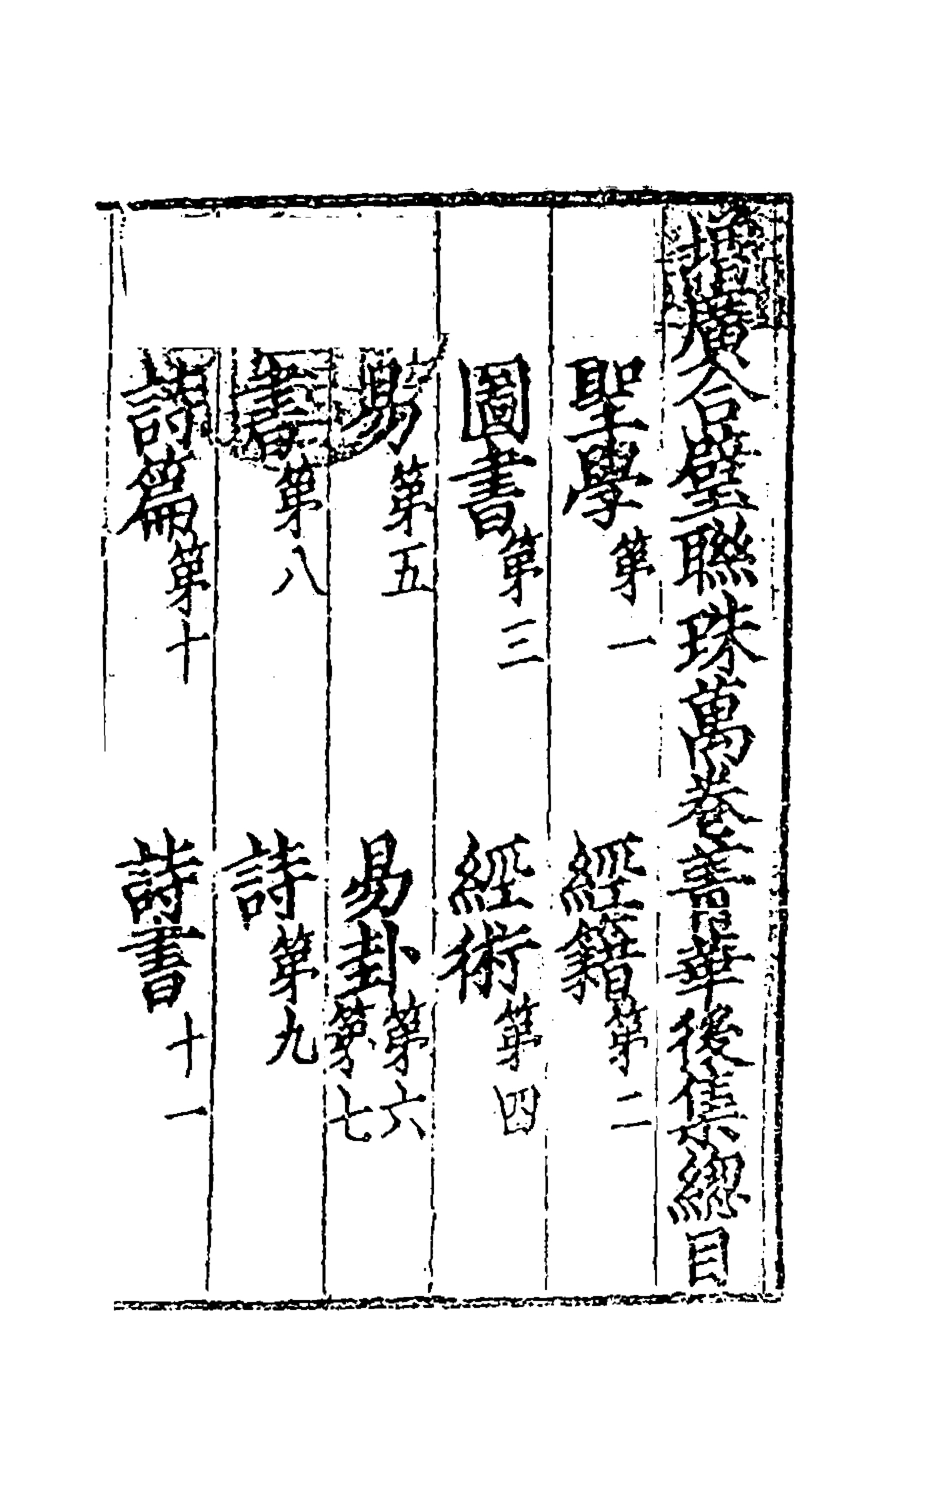 增廣合璧聯珠萬卷菁華後集總目
聖學第一 經籍第二
圖書第三 經術第四
易第五 易卦第六第七
書第八 詩第九
詩篇第十 詩書十一